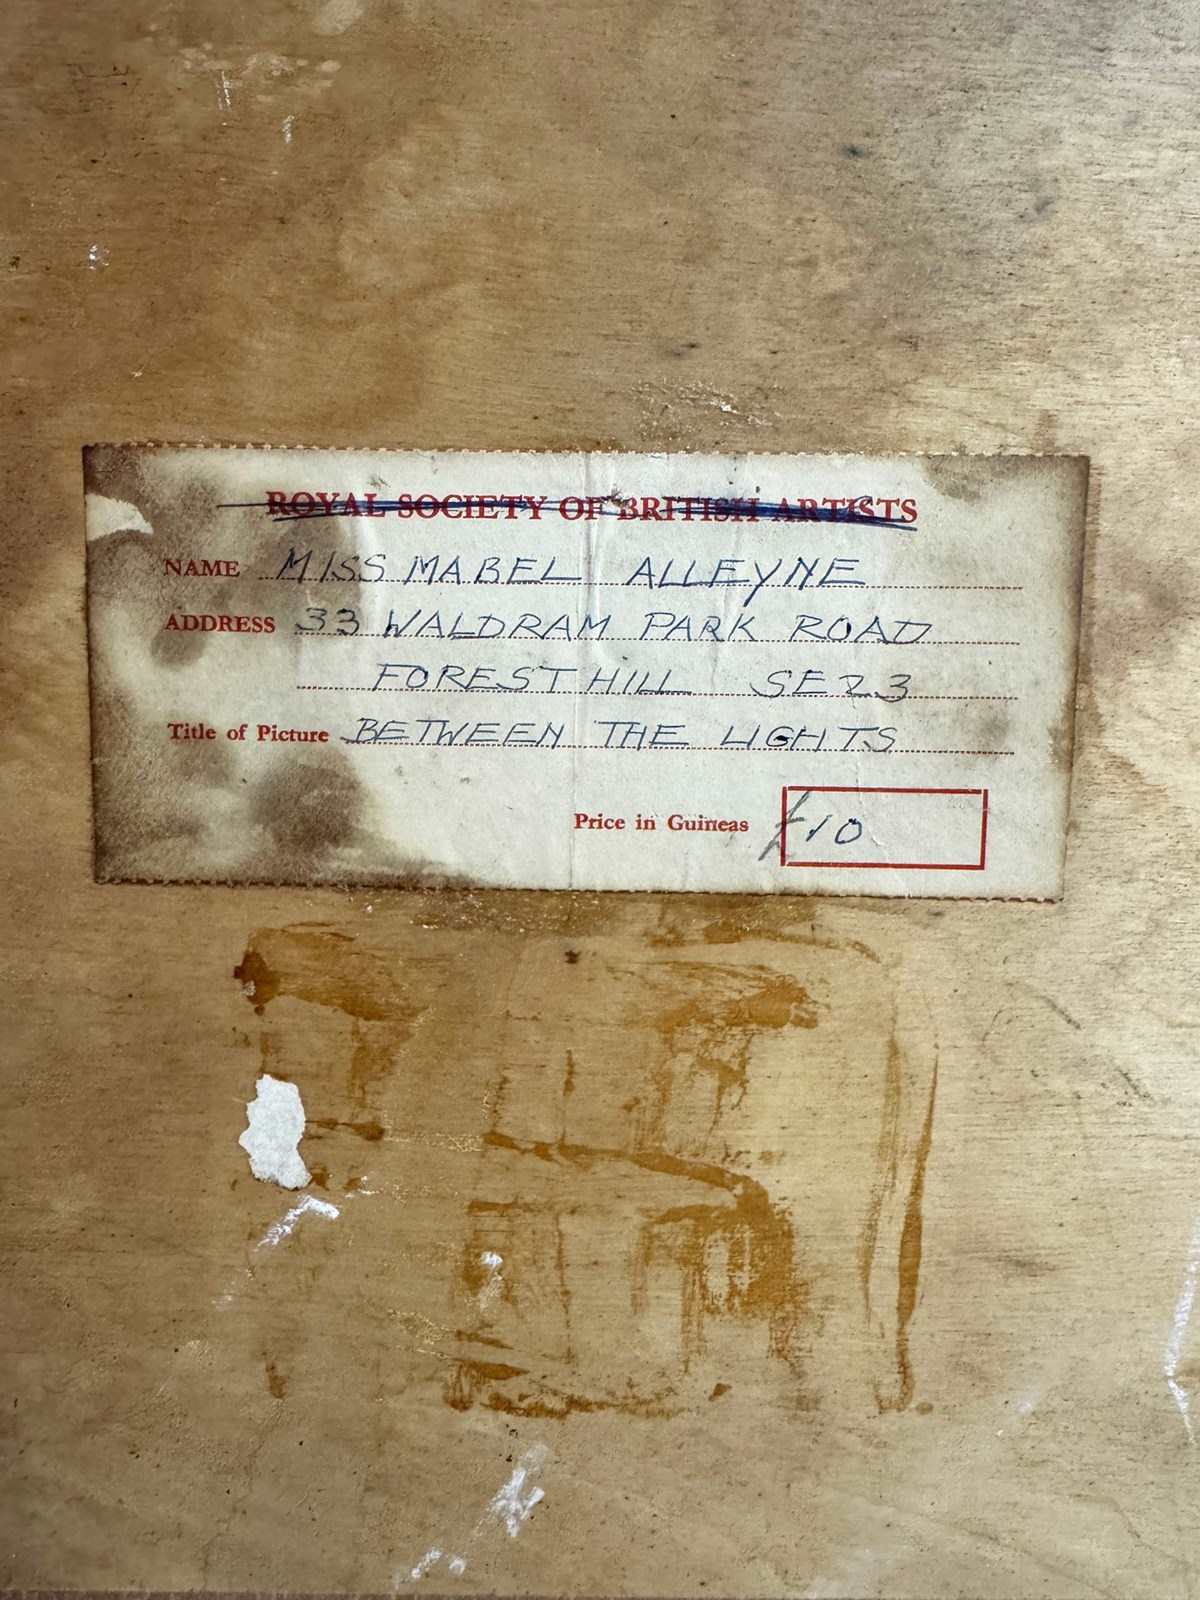 ROYAL SOCIETY OF BRITISH ARTISTS
NAME MISS MABEL ALLEYNE
ADDRESS 33 WALDRAM PARK ROAD
FOREST HILL SE23
Title of Picture BETWEEN THE LIGHTS
Price in Guineas £10